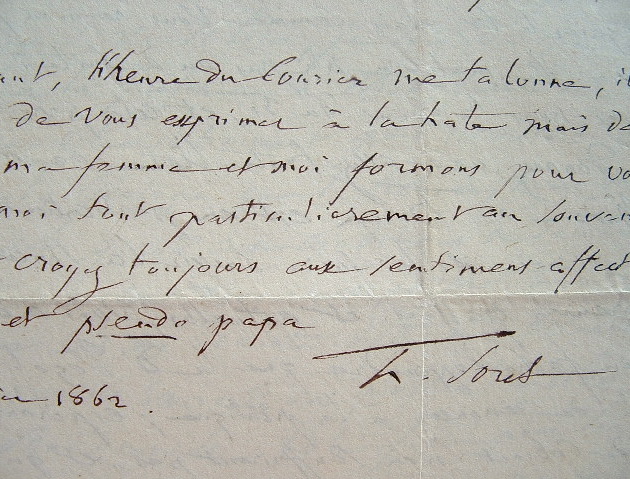 ant, l'heure du Courier me talonne, i
de vous exprimer à la hate mais de
ma femme et moi formons pour vo
moi tout particulierement au souven
croyez toujours aux sentimens affect
et pseudo papa
h. Soret
1862.